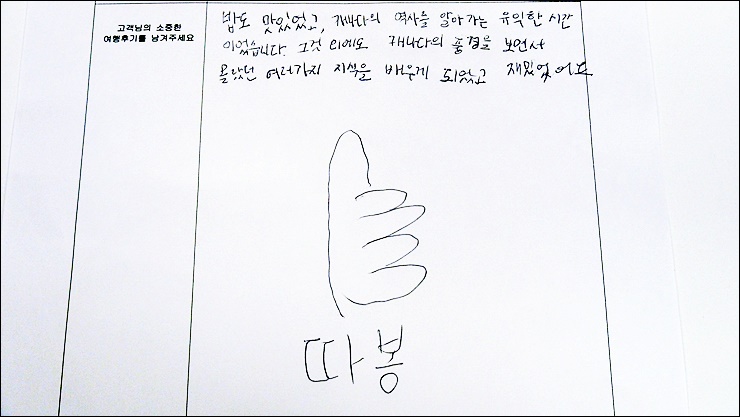 고객님의 소중한
여행후기를 남겨주세요
밥도 맛있었고, 캐나다의 역사를 알아가는 유익한 시간
이었습니다. 그것 외에도 캐나다의 풍경을 보면서
몰랐던 여러가지 지식을 배우게 되었고 재밌었어요
따봉